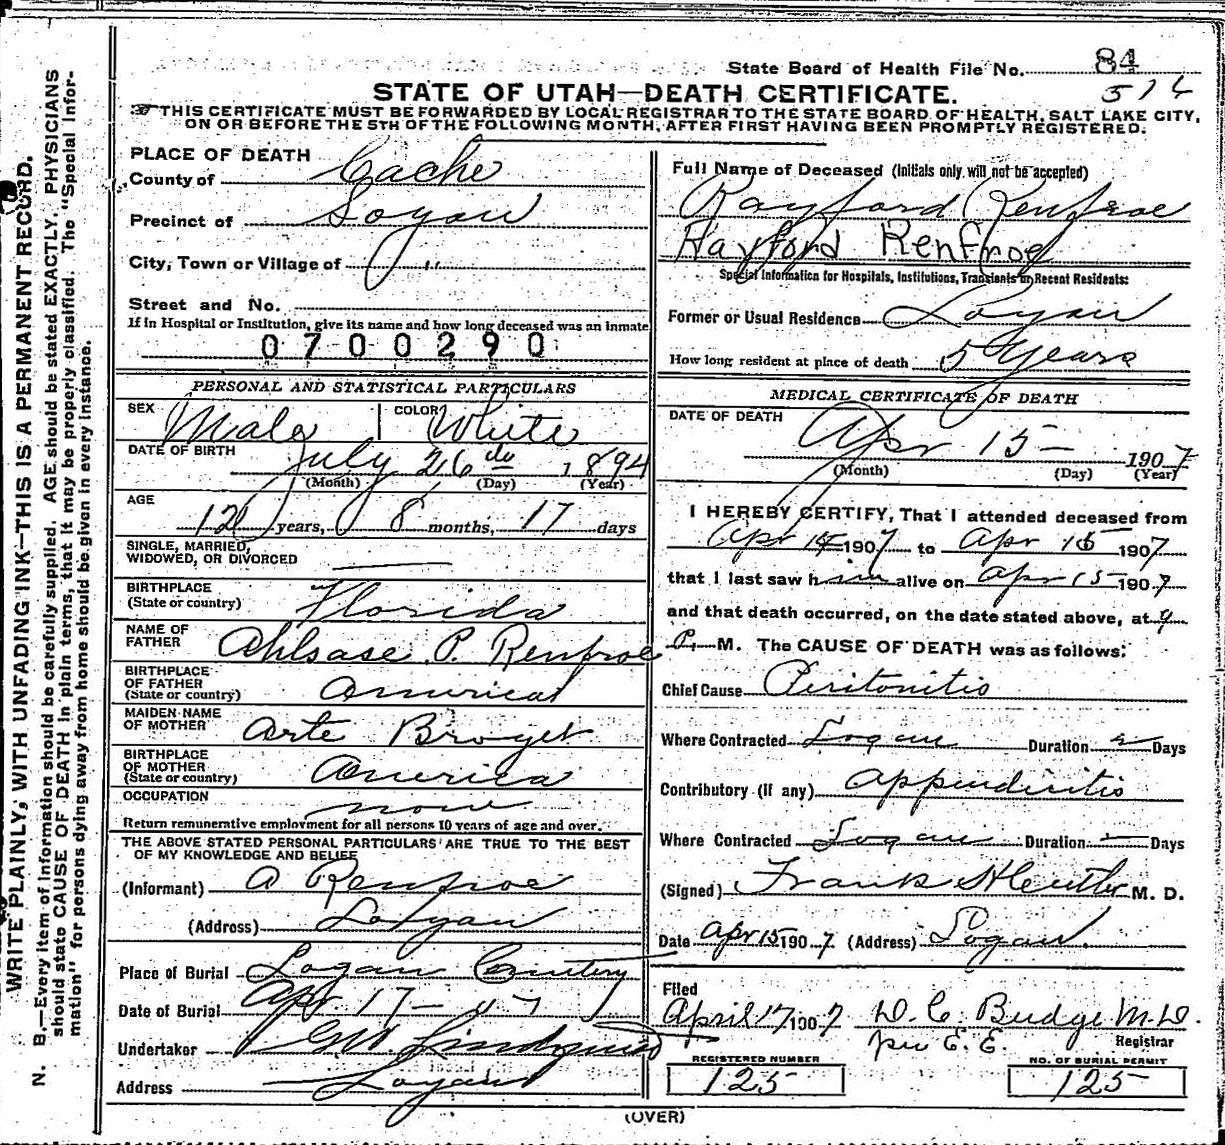 State Board of Health File No. 84
516
STATE OF UTAH—DEATH CERTIFICATE.
THIS CERTIFICATE MUST BE FORWARDED BY LOCAL REGISTRAR TO THE STATE BOARD OF HEALTH, SALT LAKE CITY,
ON OR BEFORE THE 5TH OF THE FOLLOWING MONTH, AFTER FIRST HAVING BEEN PROMPTLY REGISTERED.
WRITE PLAINLY, WITH UNFADING INK—THIS IS A PERMANENT RECORD.
N. B.—Every item of information should be carefully supplied. AGE should be stated EXACTLY. PHYSICIANS
should state CAUSE OF DEATH in plain terms, that it may be properly classified. The "Special Infor-
mation" for persons dying away from home should be given in every instance.
PLACE OF DEATH
County of Cache
Precinct of Logan
City, Town or Village of "
Street and No.
If in Hospital or Institution, give its name and how long deceased was an inmate
0700290
PERSONAL AND STATISTICAL PARTICULARS
SEX Male COLOR White
DATE OF BIRTH July 26 1894
(Month) (Day) (Year)
AGE 12 years, 8 months, 17 days
SINGLE, MARRIED,
WIDOWED, OR DIVORCED
BIRTHPLACE
(State or country) Florida
NAME OF
FATHER Ahlsase P. Renfroe
BIRTHPLACE
OF FATHER
(State or country) America
MAIDEN NAME
OF MOTHER Arte
BIRTHPLACE
OF MOTHER
(State or country) America
OCCUPATION none
Return remunerative employment for all persons 10 years of age and over.
THE ABOVE STATED PERSONAL PARTICULARS ARE TRUE TO THE BEST
OF MY KNOWLEDGE AND BELIEF
(Informant) A Renfroe
(Address) Logan
Place of Burial Logan Cemetery
Date of Burial Apr 17 - 07
Undertaker GW. Lindquist
Address Logan
Full Name of Deceased (Initials only will not be accepted)
Rayford Renfroe
Hayford Renfroe
Special Information for Hospitals, Institutions, Transients or Recent Residents:
Former or Usual Residence Logan
How long resident at place of death 5 Years
MEDICAL CERTIFICATE OF DEATH
DATE OF DEATH
Apr 15 1907
(Month) (Day) (Year)
I HEREBY CERTIFY, That I attended deceased from
Apr 14 1907 to Apr 15 1907
that I last saw him alive on Apr 15 1907
and that death occurred, on the date stated above, at 4
P. M. The CAUSE OF DEATH was as follows:
Chief Cause Peritonitis
Where Contracted Logan Duration 2 Days
Contributory (if any) Appendicitis
Where Contracted Logan Duration Days
(Signed) Frank M. D.
Date Apr 15 1907. (Address) Logan.
Filed
April 17 1907 D. C. Budge M.D.
per E. E. Registrar
REGISTERED NUMBER
125
NO. OF BURIAL PERMIT
125
(OVER)